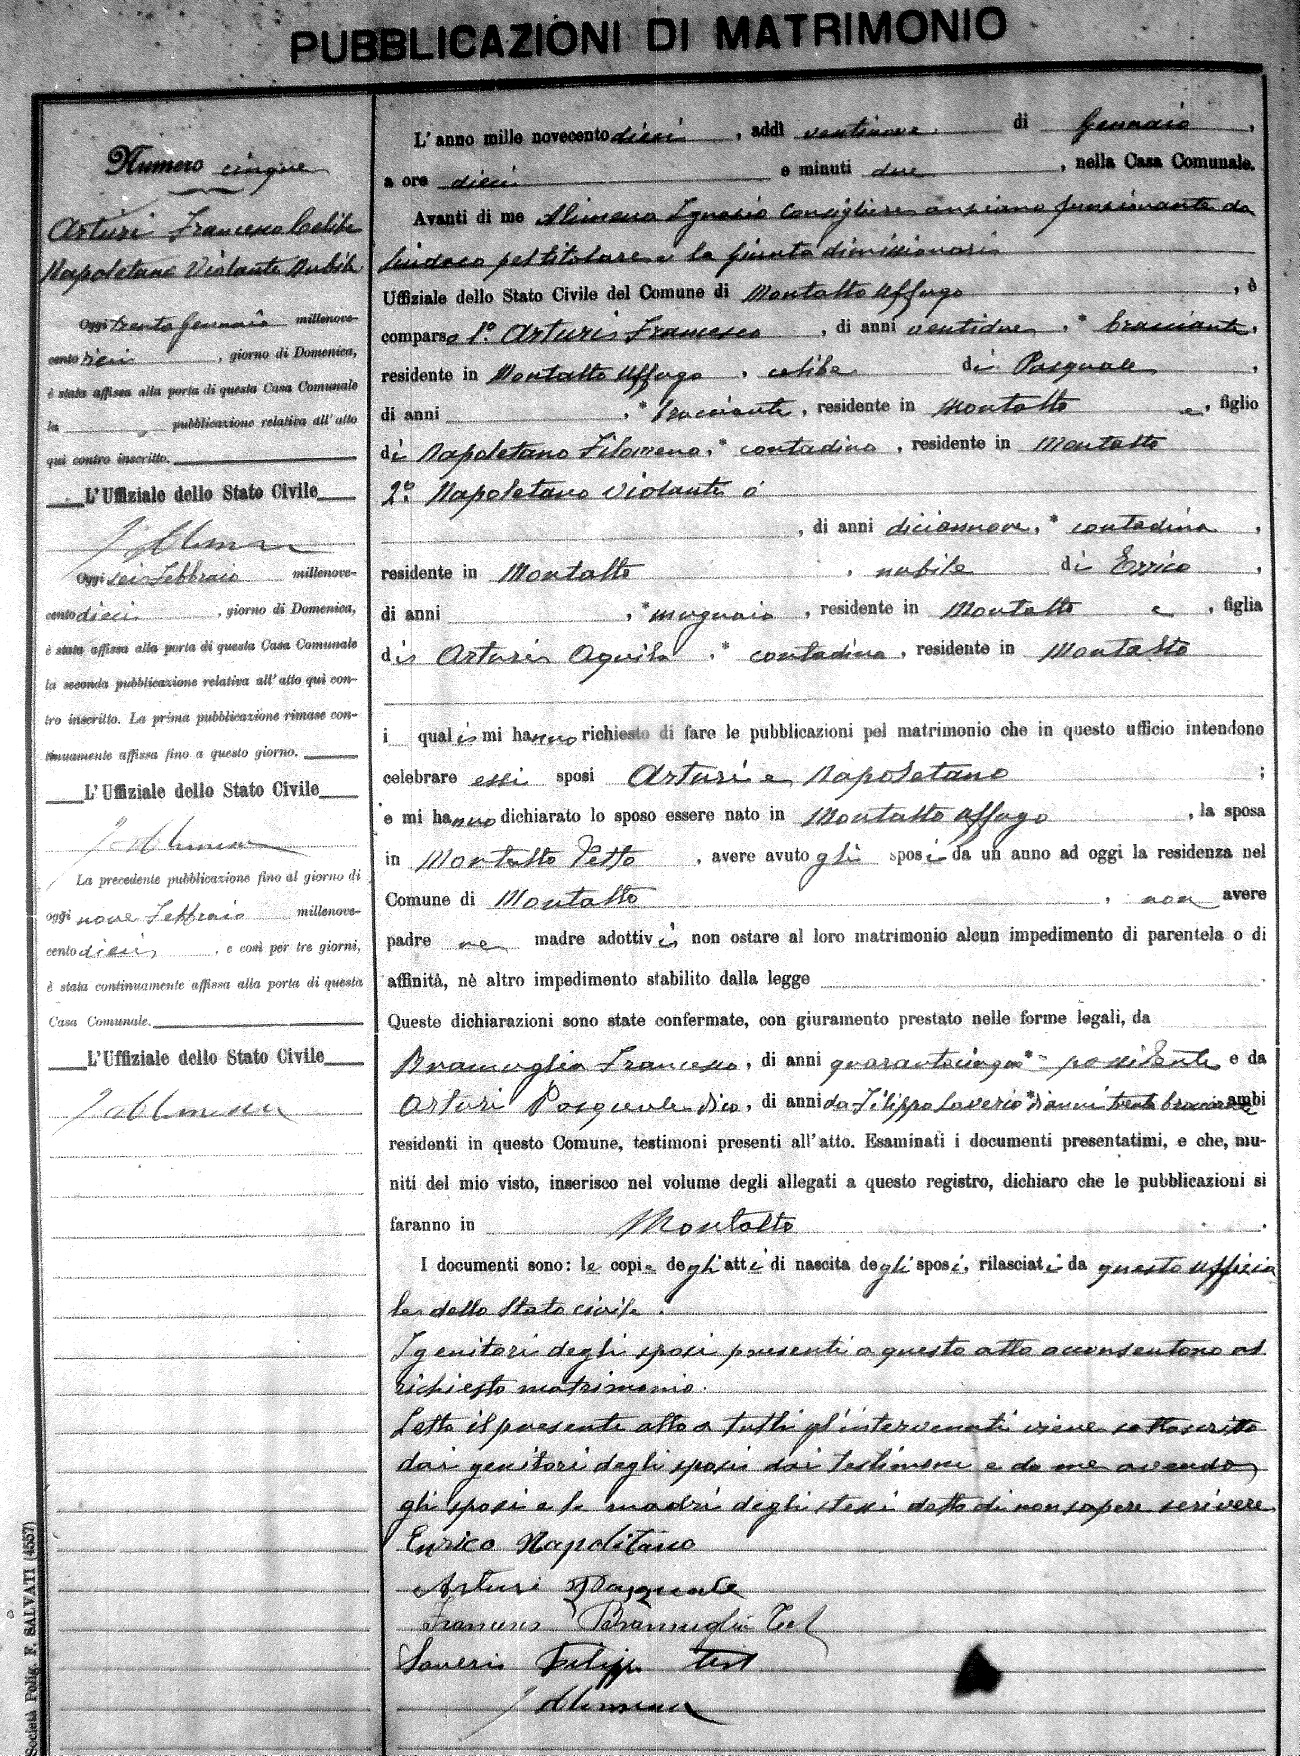 PUBBLICAZIONI DI MATRIMONIO
Numero cinque
Arturi Francesco Celibe
Napoletano Violante Nubile
Oggi trenta Gennaio millenove-
cento dieci, giorno di Domenica,
è stata affissa alla porta di questa Casa Comunale
la pubblicazione relativa all'atto
qui contro inscritto.
L'Uffiziale dello Stato Civile
Oggi sei Febbraio millenove-
cento dieci, giorno di Domenica,
è stata affissa alla porta di questa Casa Comunale
la seconda pubblicazione relativa all'atto quì con-
tro inscritto. La prima pubblicazione rimase con-
tinuamente affissa fino a questo giorno.
L'Uffiziale dello Stato Civile
La precedente pubblicazione fino al giorno di
oggi nove Febbraio millenove-
cento dieci, e così per tre giorni,
è stata continuamente affissa alla porta di questa
Casa Comunale.
L'Uffiziale dello Stato Civile
L'anno mille novecento dieci, addì ventinove di Gennaio,
a ore dieci e minuti due, nella Casa Comunale.
Avanti di me Alimena Ignazio Consigliere anziano funzionante da
Sindaco pel titolare e la giunta dimissionari
Uffiziale dello Stato Civile del Comune di Montalto Uffugo, è
comparso 1º Arturi Francesco, di anni ventidue, * bracciante,
residente in Montalto Uffugo, celibe di Pasquale,
di anni , * bracciante, residente in Montalto e, figlio
di Napoletano Filomena, * contadina, residente in Montalto
2º Napoletano Violante
, di anni diciannove, * contadina,
residente in Montalto, nubile di Errico,
di anni , * mugnaio, residente in Montalto e, figlia
di Arturi Aquila, * contadina, residente in Montalto
i quali mi hanno richiesto di fare le pubblicazioni pel matrimonio che in questo ufficio intendono
celebrare essi sposi Arturi e Napoletano;
e mi hanno dichiarato lo sposo essere nato in Montalto Uffugo, la sposa
in Montalto, avere avuto gli sposi da un anno ad oggi la residenza nel
Comune di Montalto, non avere
padre ne madre adottivi non ostare al loro matrimonio alcun impedimento di parentela o di
affinità, nè altro impedimento stabilito dalla legge
Queste dichiarazioni sono state confermate, con giuramento prestato nelle forme legali, da
Bramuglia Francesco, di anni quarantacinque * possidente e da
Arturi Pasquale dico, di anni da Filippo Saverio * di anni trenta bracciante ambi
residenti in questo Comune, testimoni presenti all'atto. Esaminati i documenti presentatimi, e che, mu-
niti del mio visto, inserisco nel volume degli allegati a questo registro, dichiaro che le pubblicazioni si
faranno in Montalto.
I documenti sono: le copie degli atti di nascita degli sposi, rilasciati da questo Ufficia
le dello Stato civile.
I genitori degli sposi presenti a questo atto acconsentono al
richiesto matrimonio.
Letto il presente atto a tutti gl'intervenuti viene sottoscritto
dai genitori degli sposi dai testimoni e da me avendo
gli sposi e le madri degli stessi detto di non sapere scrivere
Enrico Napolitano
Arturi Pasquale
Francesco Bramuglia Test
Saverio Filippo test
Società Polig. F. SALVATI (4557)